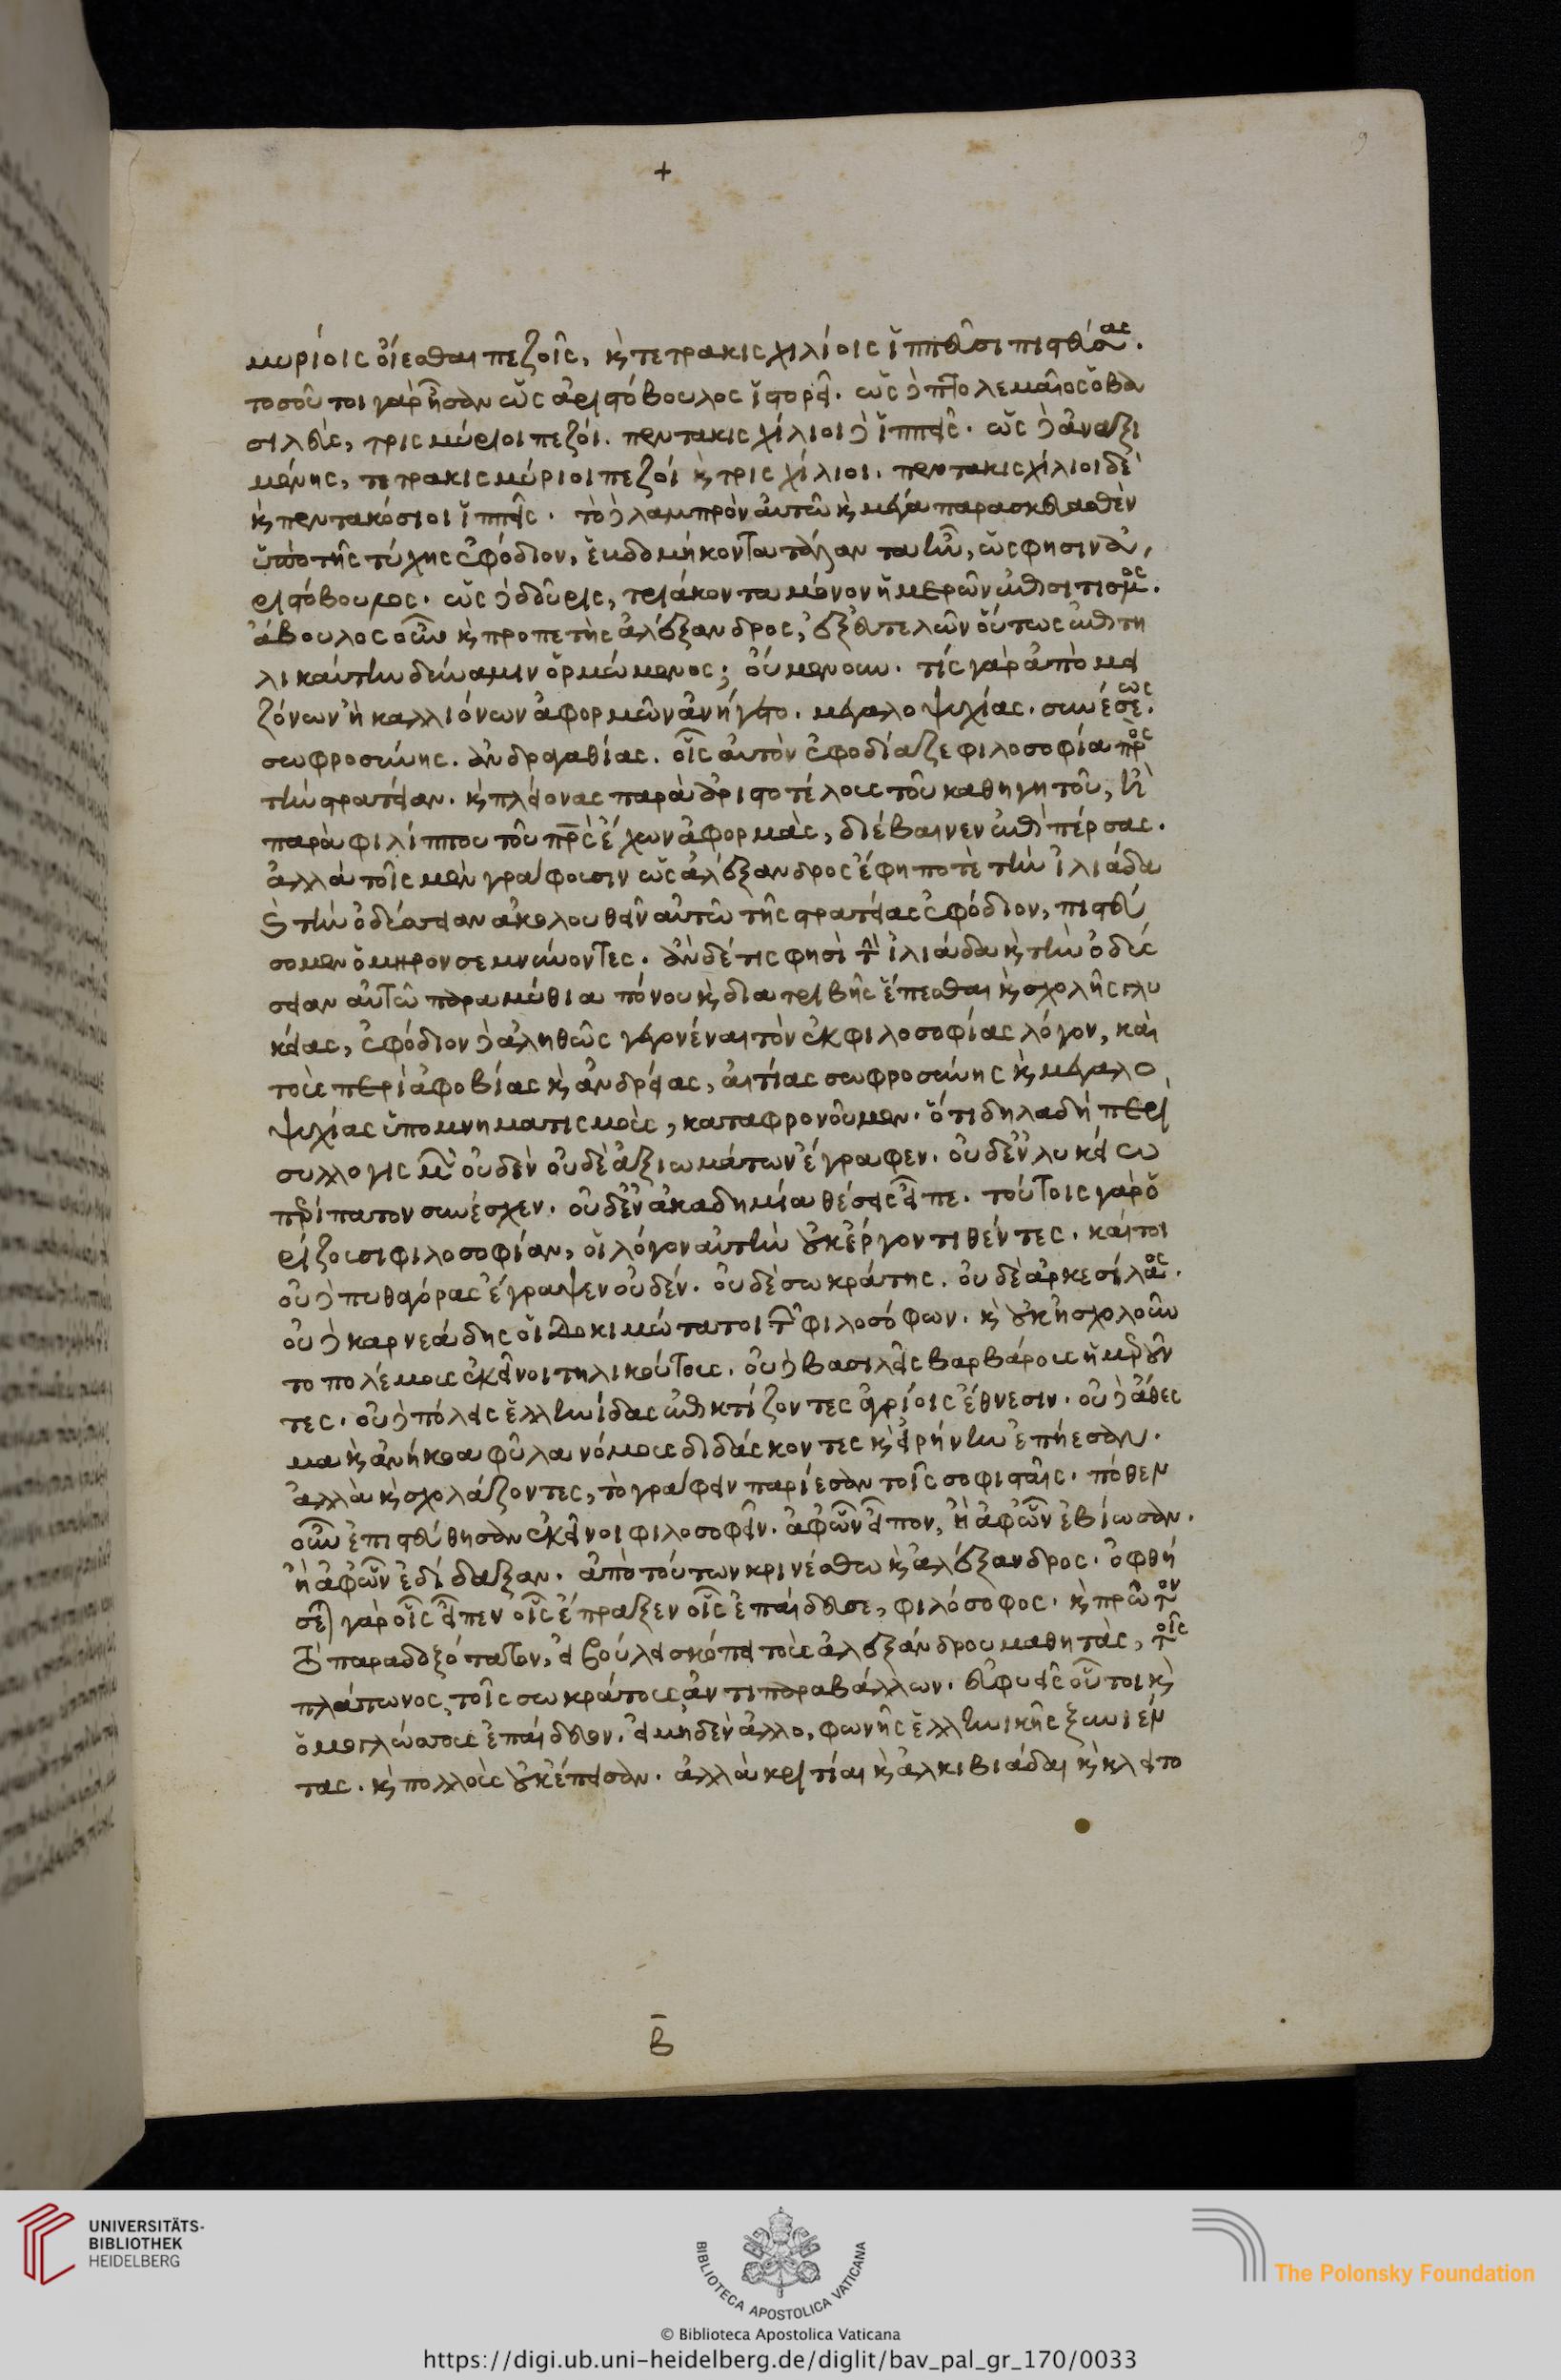 +
9
μυρίοις οἴεσθαι πεζοῖς, κ̀ τετρακισχιλίοις ἱππεῦσι πιστεύσας.
τοσοῦτοι γὰρ ἦσαν ὡς ἀριστόβουλος ἱστορεῖ. ὡς δὲ πτολεμαῖος ὁ βα
σιλεὺς, τρισμύριοι πεζοί. πεντακισχίλιοι δὲ ἱππεῖς. ὡς δὲ ἀναξι
μένης, τετρακισμύριοι πεζοί κ̀ τρισχίλιοι. πεντακισχίλιοι δὲ
κ̀ πεντακόσιοι ἱππεῖς. τὸ δὲ λαμπρὸν αὐτῶ κ̀ μέγα παρασκευασθὲν
ὑπὸ τῆς τύχης ἐφόδιον, ἑβδομήκοντα τάλαντα ἦν, ὥς φησιν ἀ,
ριστόβουλος. ὡς δὲ δοῦρις, τριάκοντα μόνον ἡμερῶν ἐπισιτισμός.
ἄβουλος οὖν κ̀ προπετὴς ἀλέξανδρος, ἐξ εὐτελῶν οὕτως ἐπὶ τη
λικαύτην δύναμιν ὁρμώμενος; οὐμενοῦν. τίς γὰρ ἀπὸ μει
ζόνων ἢ καλλιόνων ἀφορμῶν ἀνήγετο. μεγαλοψυχίας. συνέσεως.
σωφροσύνης. ἀνδραγαθίας. οἷς αὐτὸν ἐφοδίαζε φιλοσοφία πρὸς
τὴν στρατείαν. κ̀ πλείονας παρὰ ἀριστοτέλους τοῦ καθηγητοῦ, ἢ
παρὰ φιλίππου τοῦ πρς ἔχων ἀφορμὰς, διέβαινεν ἐπὶ πέρσας.
ἀλλὰ τοῖς μὲν γράφουσιν ὡς ἀλέξανδρος ἔφη ποτὲ τὴν ἰλιάδα
κ̀ τὴν ὀδύσσειαν ἀκολουθεῖν αὐτῶ τῆς στρατείας ἐφόδιον, πιστεύ
σομεν ὅμηρον σεμνύνοντες. ἂν δέ τις φησὶ τὴν ἰλιάδα κ̀ τὴν ὀδύσ
σειαν αὐτῶ παραμύθια πόνου κ̀ διατριβῆς ἕπεσθαι κ̀ σχολῆς γλυ
κείας, ἐφόδιον δὲ ἀληθῶς γεγονέναι τὸν ἐκ φιλοσοφίας λόγον, καὶ
τοὺς περὶ ἀφοβίας κ̀ ἀνδρείας, αἰτίας σωφροσύνης κ̀ μεγαλο
ψυχίας ὑπομνηματισμοὺς, καταφρονοῦμεν. ὅτι δηλαδὴ περὶ
συλλογισμῶν οὐδὲν οὐδὲ ἀξιωμάτων ἔγραφεν. οὐδ' ἐν λυκείω
περίπατον συνέσχεν. οὐδ' ἐν ἀκαδημία θέσεις εἶπε. τούτοις γὰρ ὁ
ρίζουσι φιλοσοφίαν, οἱ λόγον αὐτὴν οὐκ ἔργον τιθέντες. καίτοι
οὐδὲ πυθαγόρας ἔγραψεν οὐδέν. οὐδὲ σωκράτης. οὐδὲ ἀρκεσίλαος.
οὐδὲ καρνεάδης οἱ δοκιμώτατοι τῶν φιλοσόφων. κ̀ οὐκ ἠσχολοῦν
το πολέμους ἐκεῖνοι τηλικούτους. οὐδὲ βασιλεῖς βαρβάρους ἡμεροῦν
τες. οὐδὲ πόλεις ἑλληνίδας ἐπικτίζοντες ἀγρίοις ἔθνεσιν. οὐδὲ ἄθεσ
μα κ̀ ἀνήκοα φῦλα νόμους διδάσκοντες κ̀ εἰρήνην ἐπήεσαν.
ἀλλὰ κ̀ σχολάζοντες, τὸ γράφειν παρίεσαν τοῖς σοφισταῖς. πόθεν
οὖν ἐπιστεύθησαν ἐκεῖνοι φιλοσοφεῖν. ἀφ' ὧν εἶπον, ἢ ἀφ' ὧν ἐβίωσαν.
ἢ ἀφ' ὧν ἐδίδαξαν. ἀπὸ τούτων κρινέσθω κ̀ ἀλέξανδρος. ὀφθή
σεται γὰρ οἷς εἶπεν οἷς ἔπραξεν οἷς ἐπαίδευσε, φιλόσοφος. κ̀ πρῶτον
τὸ παραδοξότατον, εἰ βούλει σκόπει τοὺς ἀλεξάνδρου μαθητὰς, τοῖς
πλάτωνος, τοῖς σωκράτους ἀντιπαραβάλλων. εὐφυεῖς οὗτοι κ̀
ὁμογλώσσους ἐπαίδευον. εἰ μηδὲν ἄλλο, φωνῆς ἑλληνικῆς ξυνιέν
τας. κ̀ πολλοὺς οὐκ ἔπεισαν. ἀλλὰ κριτίαι κ̀ ἀλκιβιάδαι κ̀ κλειτο
β̄
UNIVERSITÄTS-
BIBLIOTHEK
HEIDELBERG
BIBLIOTECA APOSTOLICA VATICANA
The Polonsky Foundation
© Biblioteca Apostolica Vaticana
https://digi.ub.uni-heidelberg.de/diglit/bav_pal_gr_170/0033